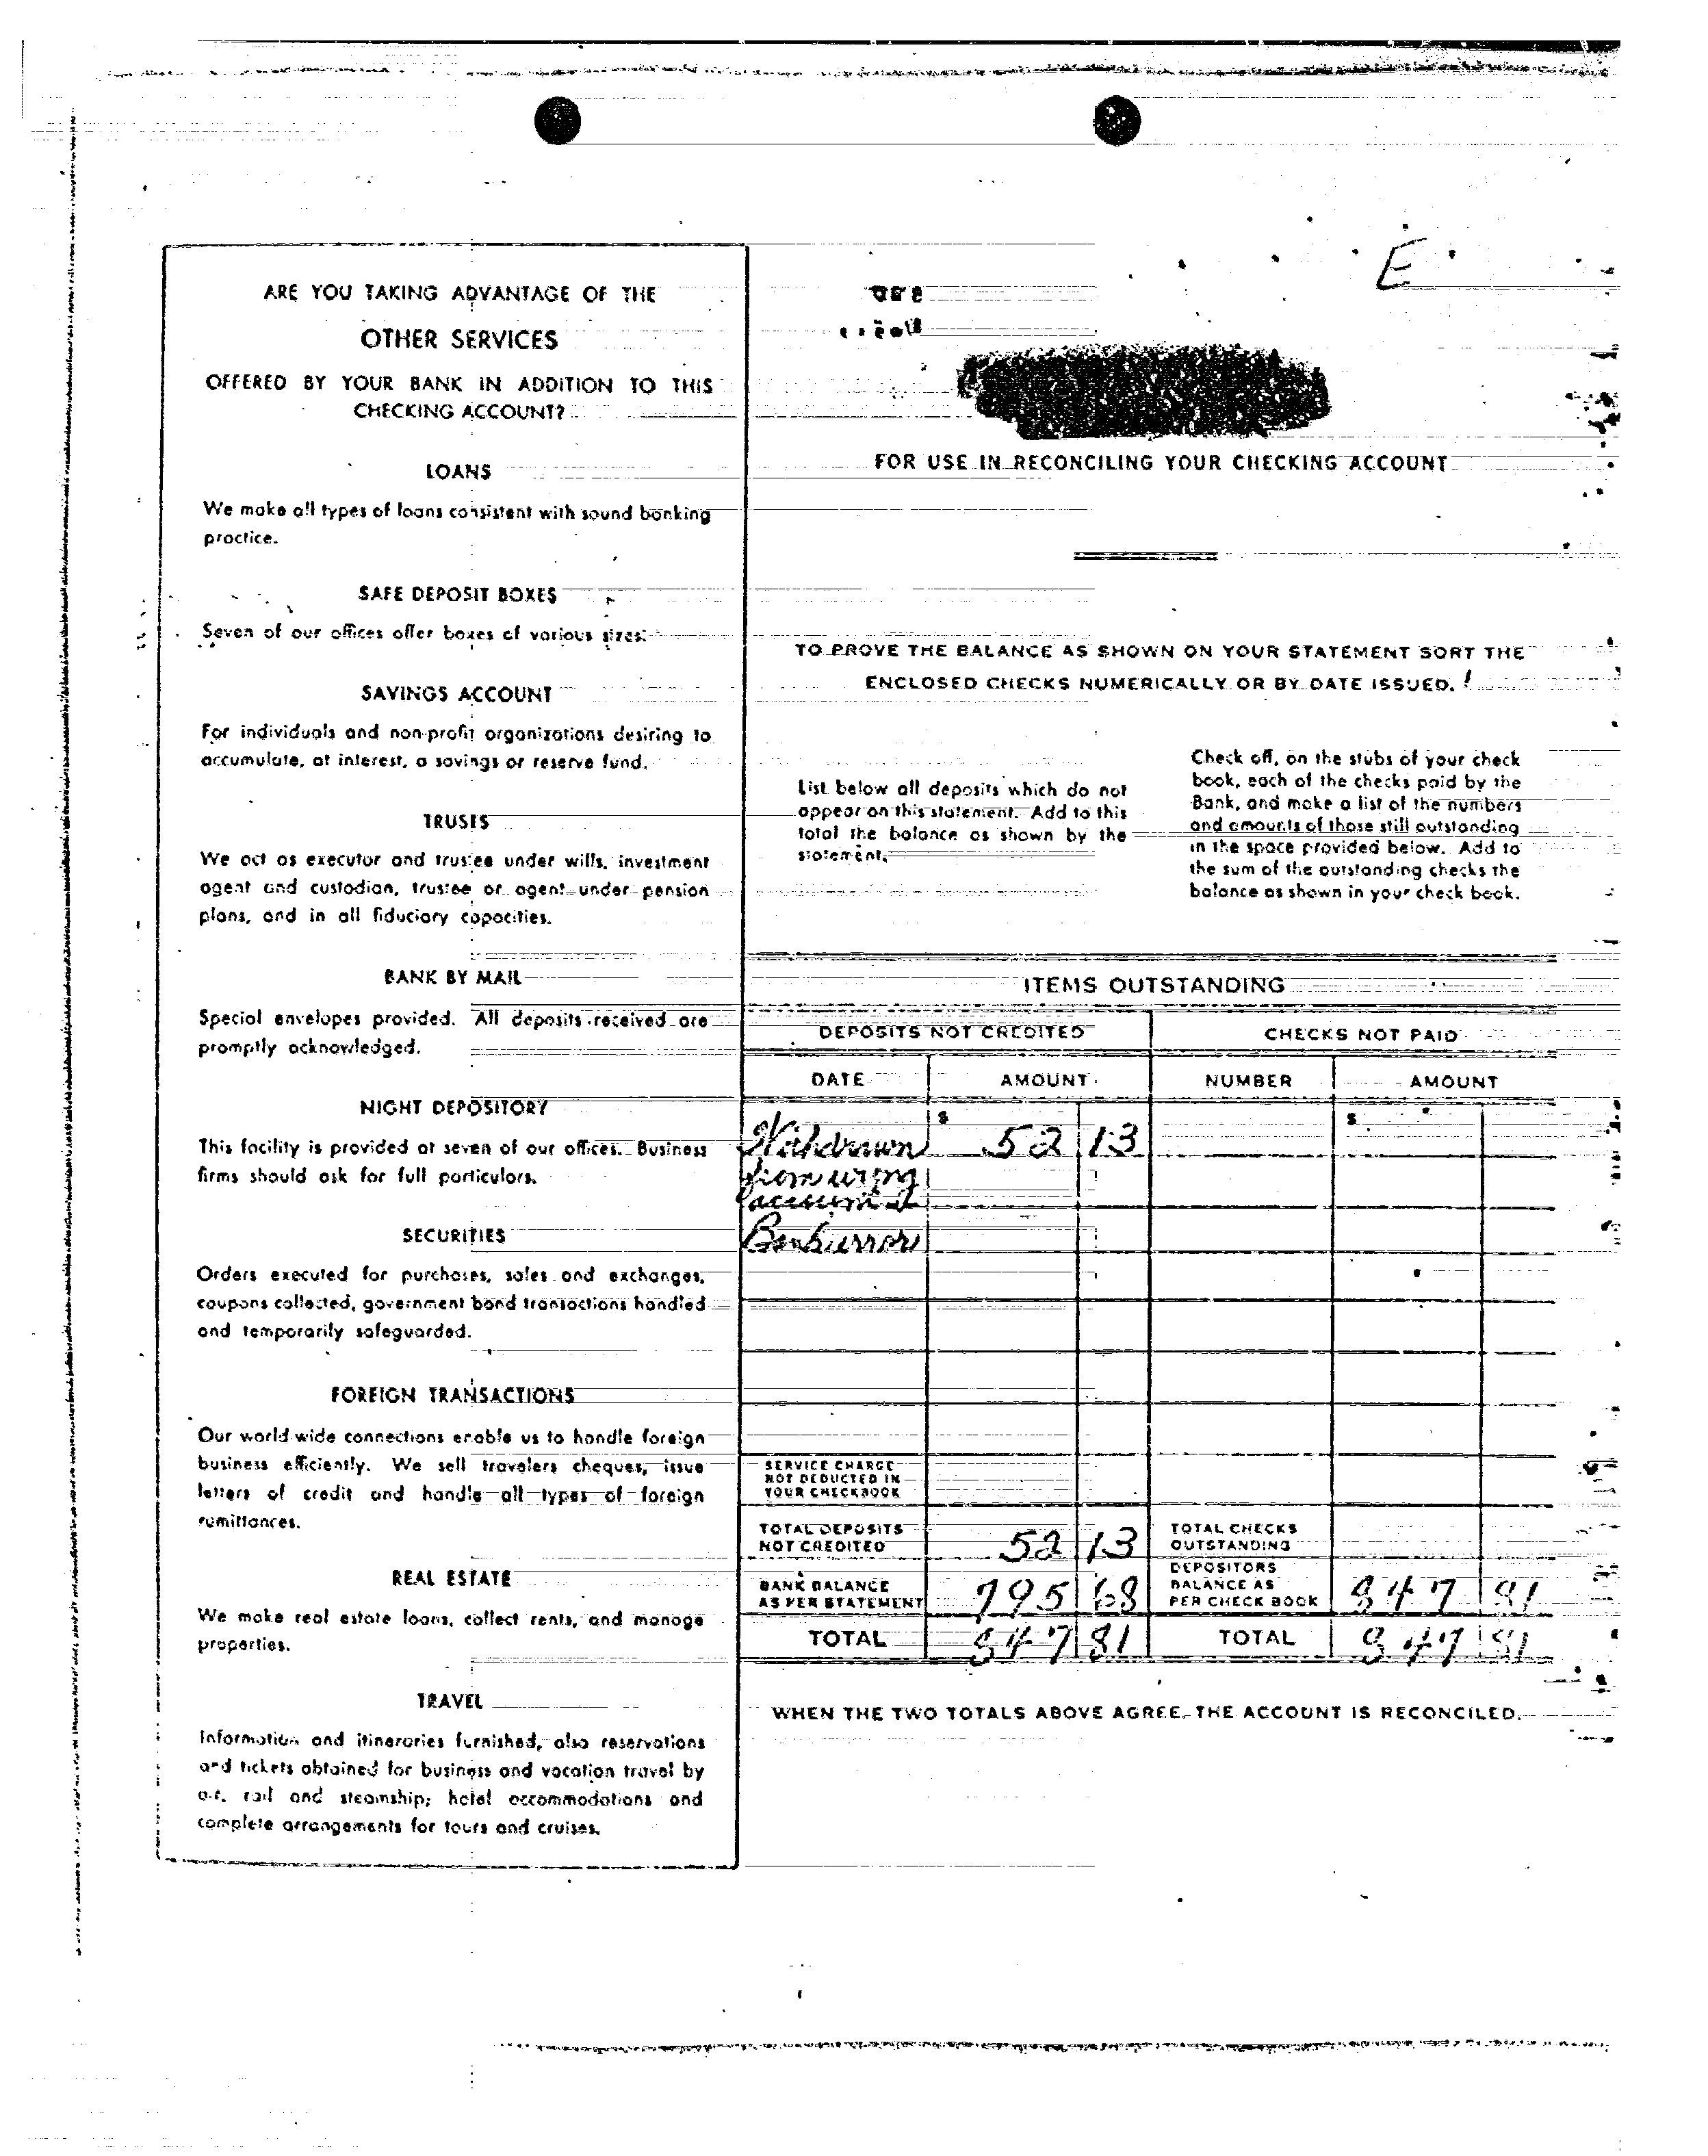 E
ARE YOU TAKING ADVANTAGE OF THE
OTHER SERVICES
OFFERED BY YOUR BANK IN ADDITION TO THIS
CHECKING ACCOUNT?
LOANS
We make all types of loans consistent with sound banking
practice.
SAFE DEPOSIT BOXES
Seven of our offices offer boxes of various sizes.
SAVINGS ACCOUNT
For individuals and non-profit organizations desiring to
accumulate, at interest, a savings or reserve fund.
TRUSTS
We act as executor and trustee under wills, investment
agent and custodian, trustee or agent under pension
plans, and in all fiduciary capacities.
BANK BY MAIL
Special envelopes provided. All deposits received are
promptly acknowledged.
NIGHT DEPOSITORY
This facility is provided at seven of our offices. Business
firms should ask for full particulars.
SECURITIES
Orders executed for purchases, sales and exchanges,
coupons collected, government bond transactions handled
and temporarily safeguarded.
FOREIGN TRANSACTIONS
Our world wide connections enable us to handle foreign
business efficiently. We sell travelers cheques, issue
letters of credit and handle all types of foreign
remittances.
REAL ESTATE
We make real estate loans, collect rents, and manage
properties.
TRAVEL
Information and itineraries furnished, also reservations
and tickets obtained for business and vacation travel by
air, rail and steamship; hotel accommodations and
complete arrangements for tours and cruises.
FOR USE IN RECONCILING YOUR CHECKING ACCOUNT
TO PROVE THE BALANCE AS SHOWN ON YOUR STATEMENT SORT THE
ENCLOSED CHECKS NUMERICALLY OR BY DATE ISSUED.
List below all deposits which do not
appear on this statement. Add to this
total the balance as shown by the
statement.
Check off, on the stubs of your check
book, each of the checks paid by the
Bank, and make a list of the numbers
and amounts of those still outstanding
in the space provided below. Add to
the sum of the outstanding checks the
balance as shown in your check book.
ITEMS OUTSTANDING
DEPOSITS NOT CREDITED CHECKS NOT PAID
DATE AMOUNT NUMBER AMOUNT
$ $
Withdrawn 52 13
from wrong
account
Bank error
SERVICE CHARGE
NOT DEDUCTED IN
YOUR CHECKBOOK
TOTAL DEPOSITS
NOT CREDITED 52 13
TOTAL CHECKS
OUTSTANDING
BANK BALANCE
AS PER STATEMENT 795 68
DEPOSITORS
BALANCE AS
PER CHECK BOOK 847 81
TOTAL 847 81 TOTAL 847 81
WHEN THE TWO TOTALS ABOVE AGREE, THE ACCOUNT IS RECONCILED.